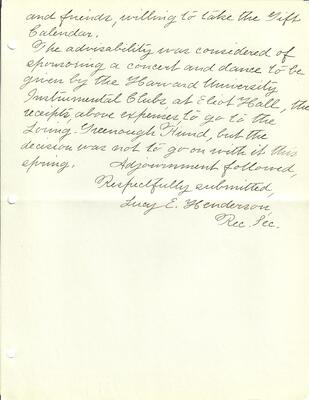 and friends, willing to take the Gift
Calendar.
The advisability was considered of
sponsoring a concert and dance to be
given by the Harvard University
Instrumental Clubs at Eliot Hall, the
receipts, above expenses to go to the
Loring-Greenough Fund, but the
decision was not to go on with it this
spring. Adjournment followed,
Respectfully submitted,
Lucy E. Henderson,
Rec. Sec.